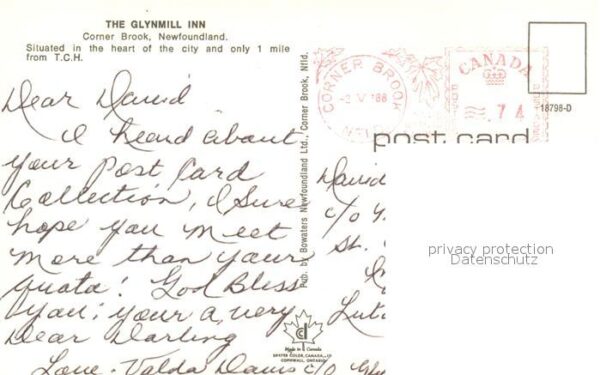 THE GLYNMILL INN
Corner Brook, Newfoundland.
Situated in the heart of the city and only 1 mile
from T.C.H.
Dear David
I heard about
your Post Card
Collection, I sure
hope you meet
more than your
quota! God Bliss
you; your a, very
Dear Darling
Love. Valda Davis c/o
Pub. by Bowaters Newfoundland Ltd., Corner Brook, Nfld.
CORNER BROOK
-2 V '88
NFLD
CANADA
.74
18798-D
post card
David
c/o
St.
privacy protection
Datenschutz
Made in Canada
CORNWALL, ONTARIO